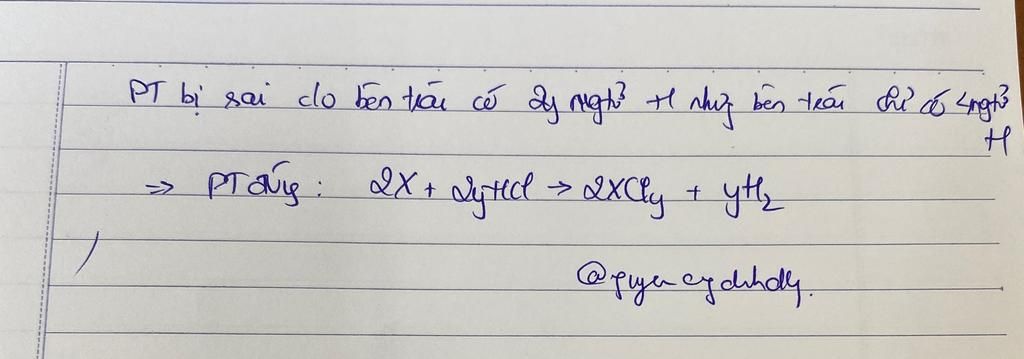 PT bị sai do bên trái có 2y ngtử H nhưg bên trái chỉ có 2 ngtử
H
=> PT đúng: 2X + 2yHCl → 2XCly + yH2